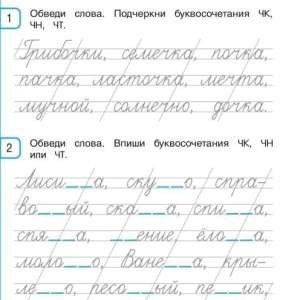 1 Обведи слова. Подчеркни буквосочетания ЧК,
ЧН, ЧТ.
Грибочки, семечка, почка,
пачка, ласточка, мечта,
мучной, солнечно, дочка.
2 Обведи слова. Впиши буквосочетания ЧК, ЧН
или ЧТ.
Лиси__а, ску__о, спра-
во__ый, ска__а, спи__а,
спя__а, __ение, ёло__а,
моло__о, Ване__а, кры-
ле__о, песо__ый, пе__ик,